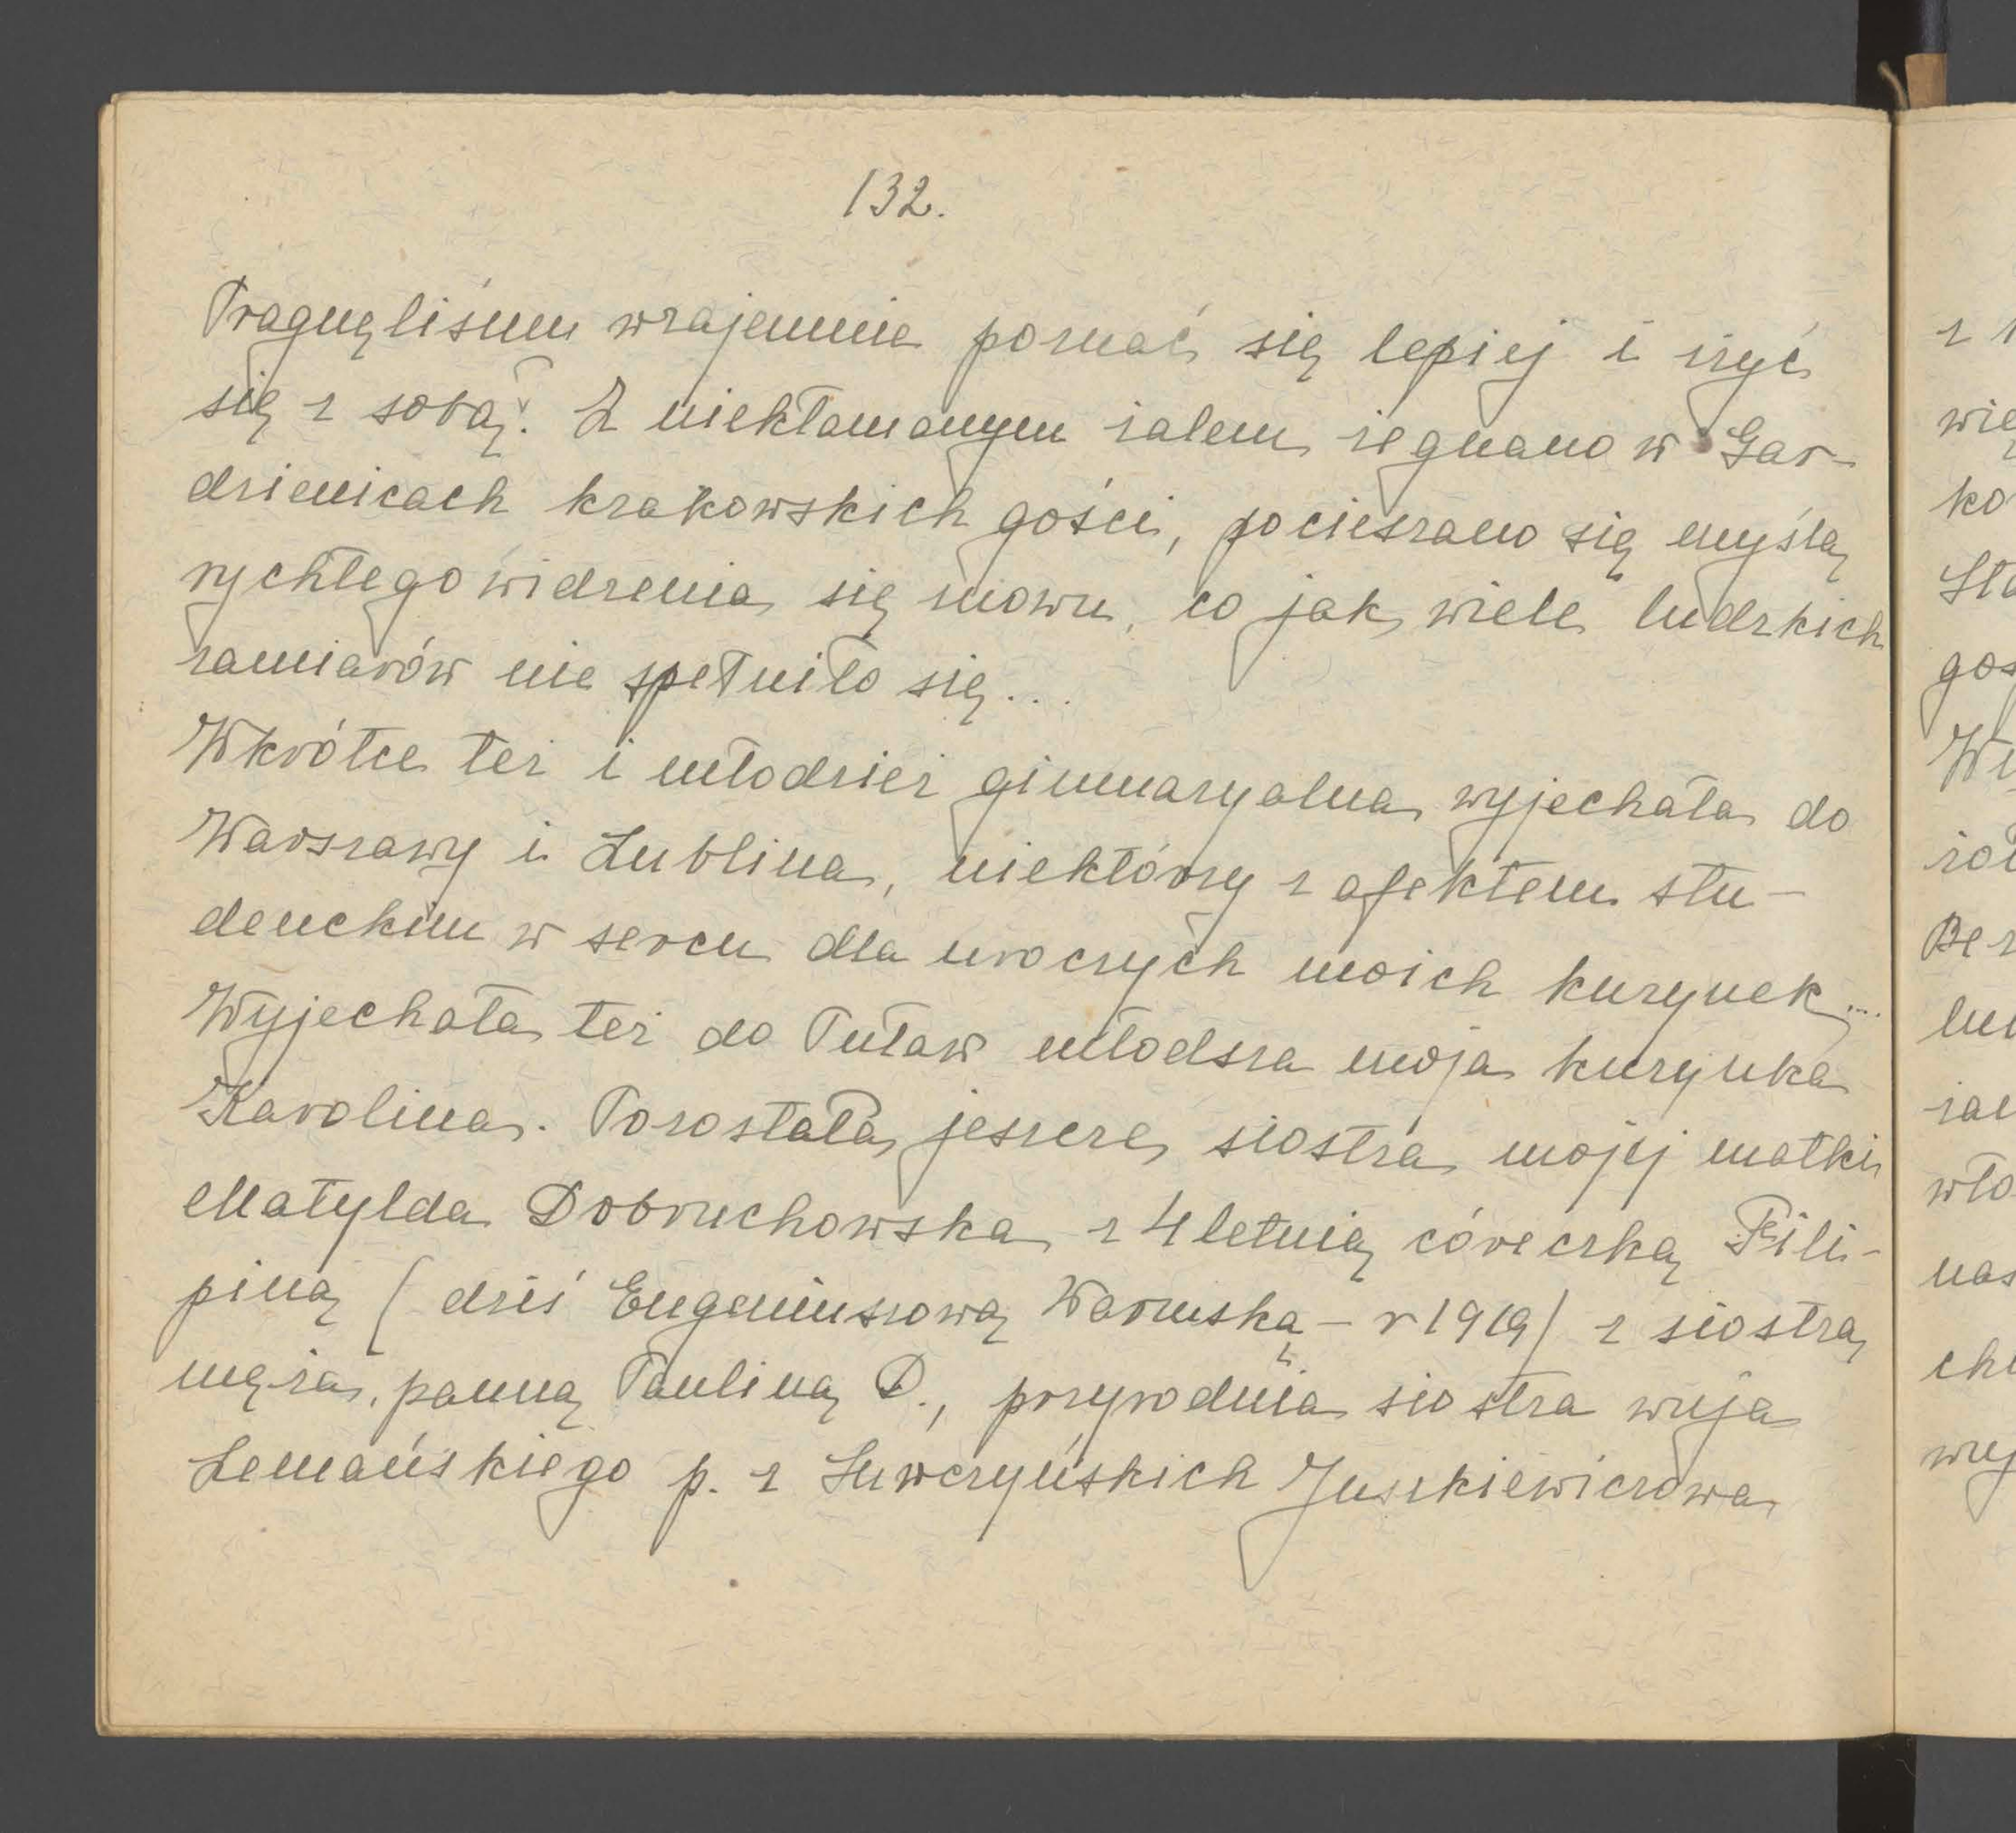 132.
Pragnęliśmy wzajemnie poznać się lepiej i zżyć
się z sobą. Z niekłamanym żalem żegnano w Gar
dzienicach krakowskich gości, pocieszano się myślą
rychłego widzenia się znowu, co jak wiele ludzkich
zamiarów nie spełniło się...
Wkrótce też i młodzież gimnazyalna wyjechała do
Warszawy i Lublina, niektórzy z afektem stu-
denckim w sercu dla uroczych moich kuzynek...
Wyjechała też do Puław młodsza moja kuzynka
Karolina. Pozostała jeszcze siostra mojej matki
Matylda Dobruchowska z 4letnią córeczką Fili-
piną (dziś Eugeniuszową Waruską - r 1919) z siostrą
męża, panną Pauliną D., przyrodnia siostra wuja
Lemańskiego p. z Luwczyńskich Juszkiewiczowa
z
wię
ko
Sta
gos